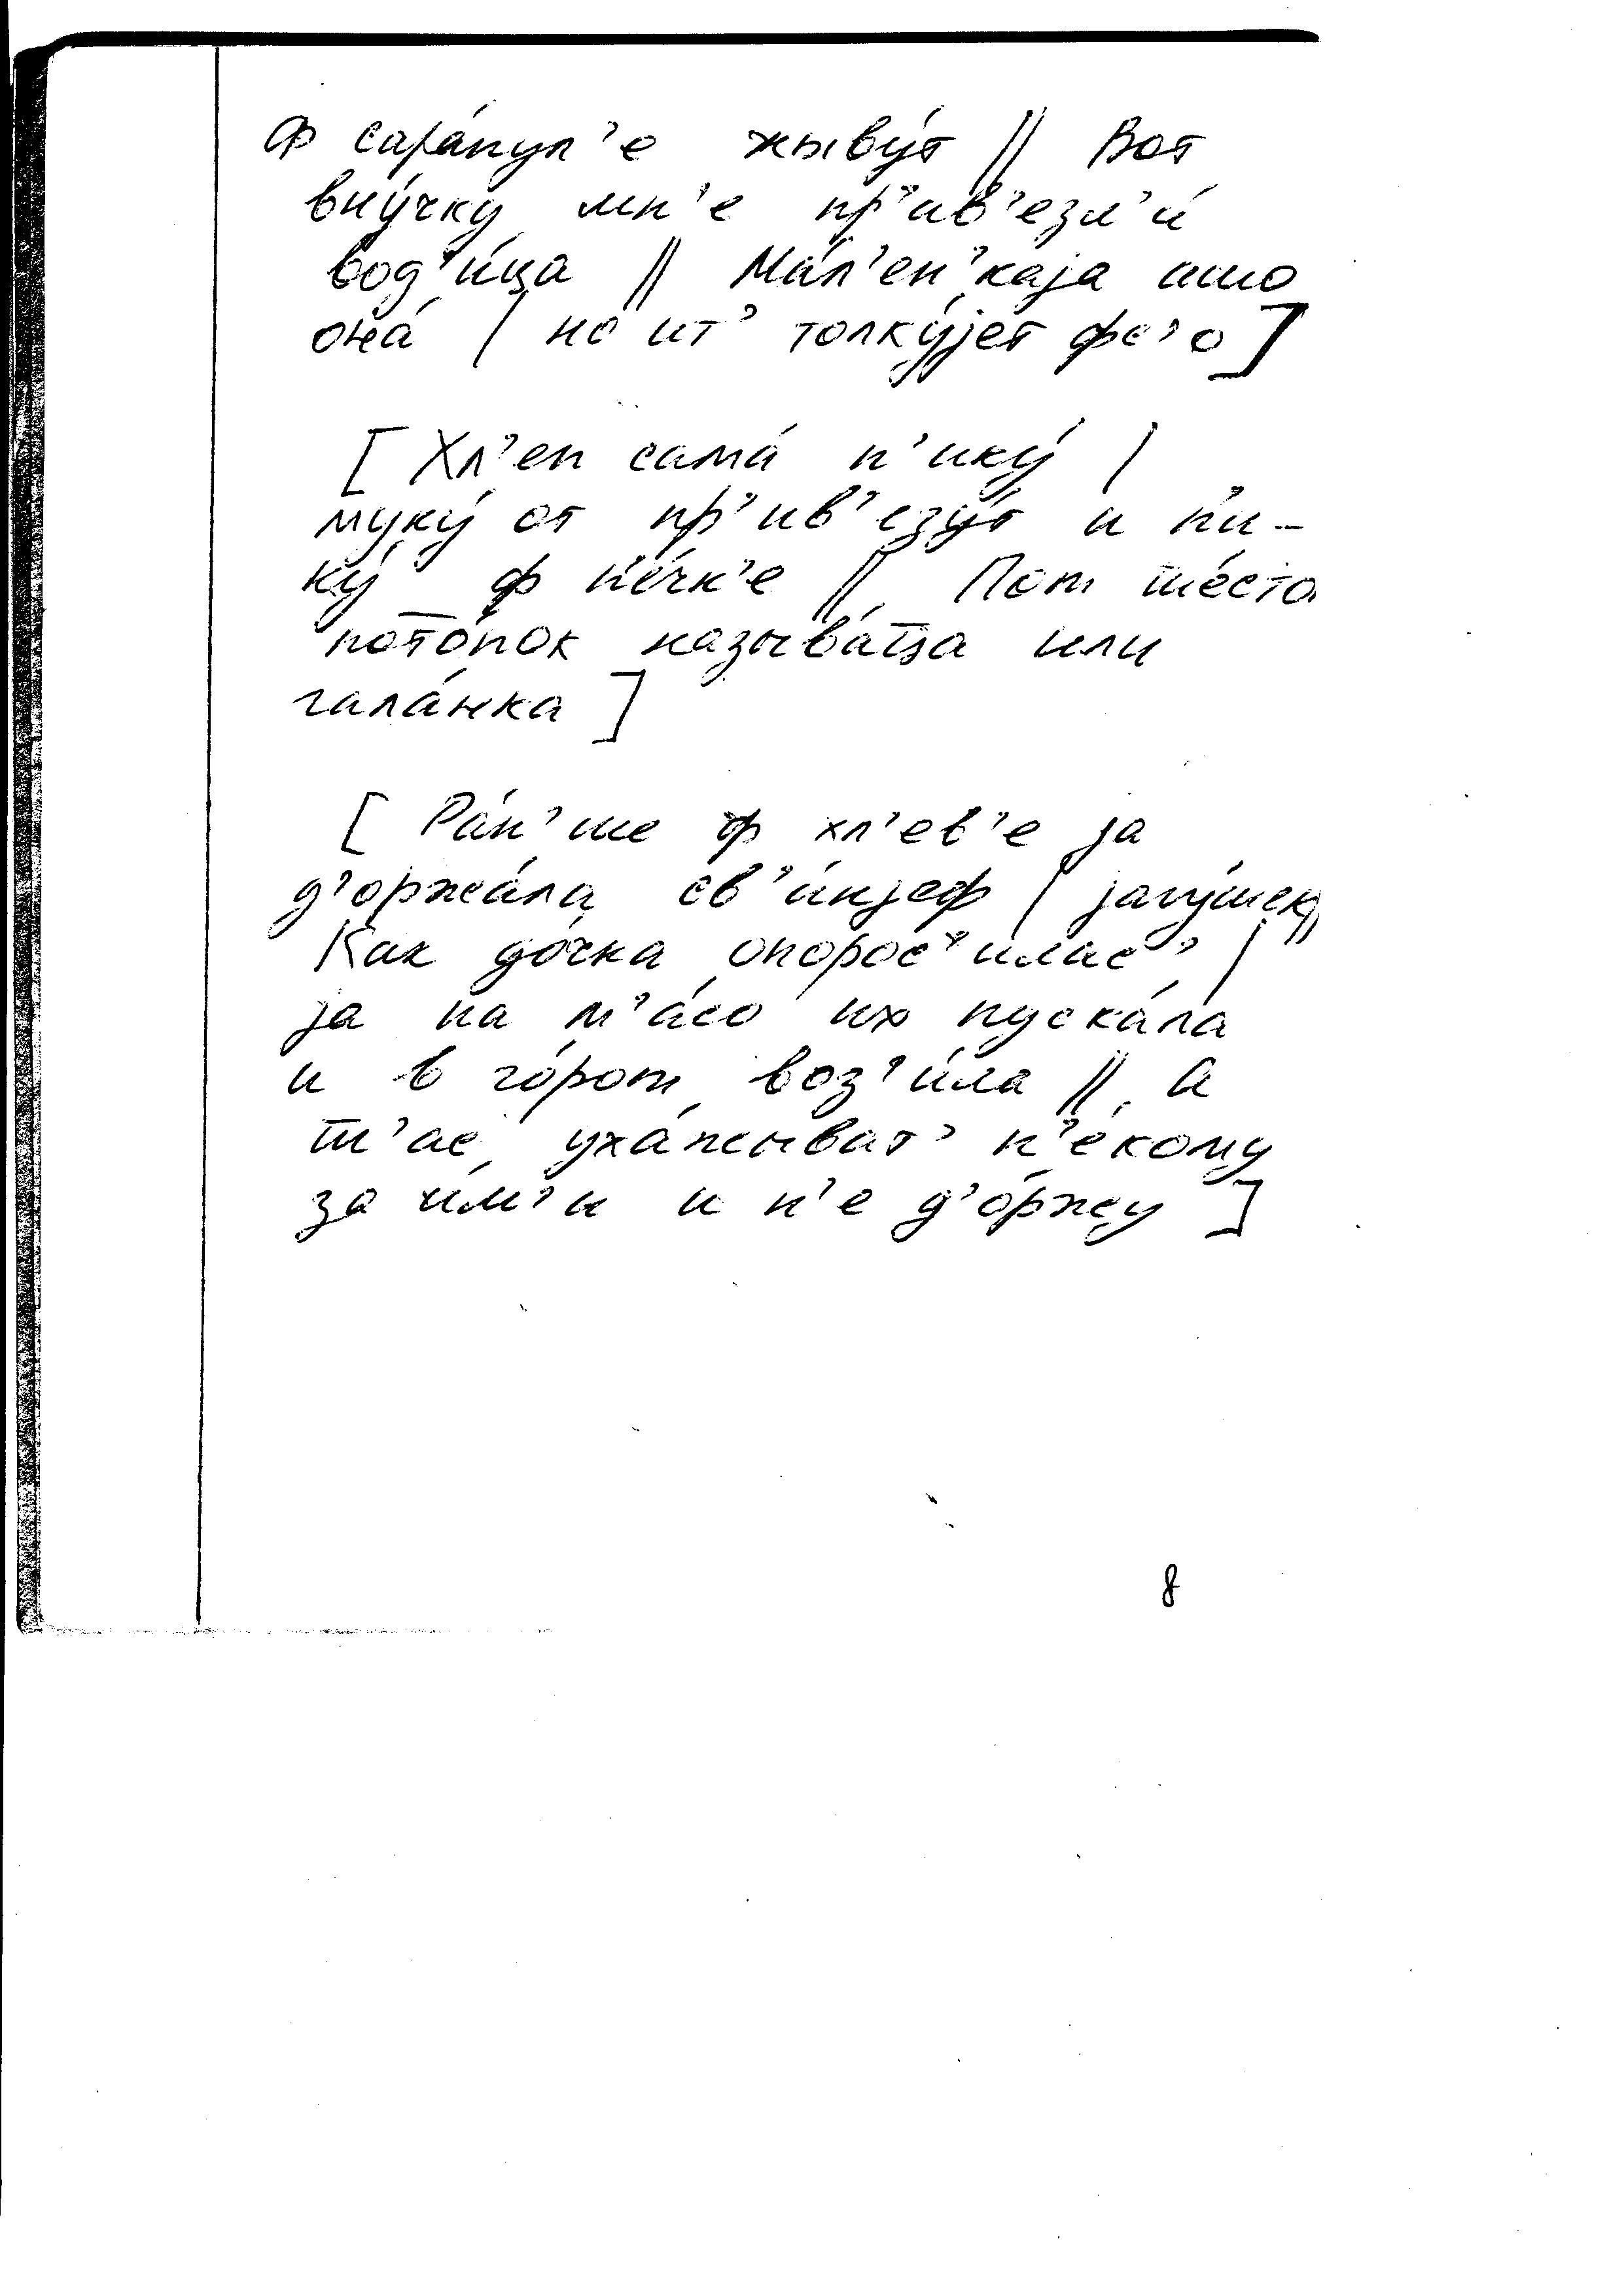 Ф сара́пул'е жыву́т || Вот
вну́чку мн'е пр'ив'езл'и́
вод'и́ца || Ма́л'ен'каjа ишо
она́ | но ит' толку́jет фс'о]
[Хл'еп сама́ п'ику́ |
муку́ от пр'ив'езу́т и п'и-
ку́ ф п'е́чк'е || Пот ше́стo
пото́пок называ́тца или
гала́нка]
[Ра́н'ше ф хл'ев'е jа
д'оржа́ла св'и́нjеф | jагу́шек ||
Как до́чка опорос'и́лас' |
jа на м'а́со их пуска́ла
и в го́рот воз'и́ла || А
т'ас уха́жыват' н'е́кому
за и́м'и и н'е д'о́ржу]
8